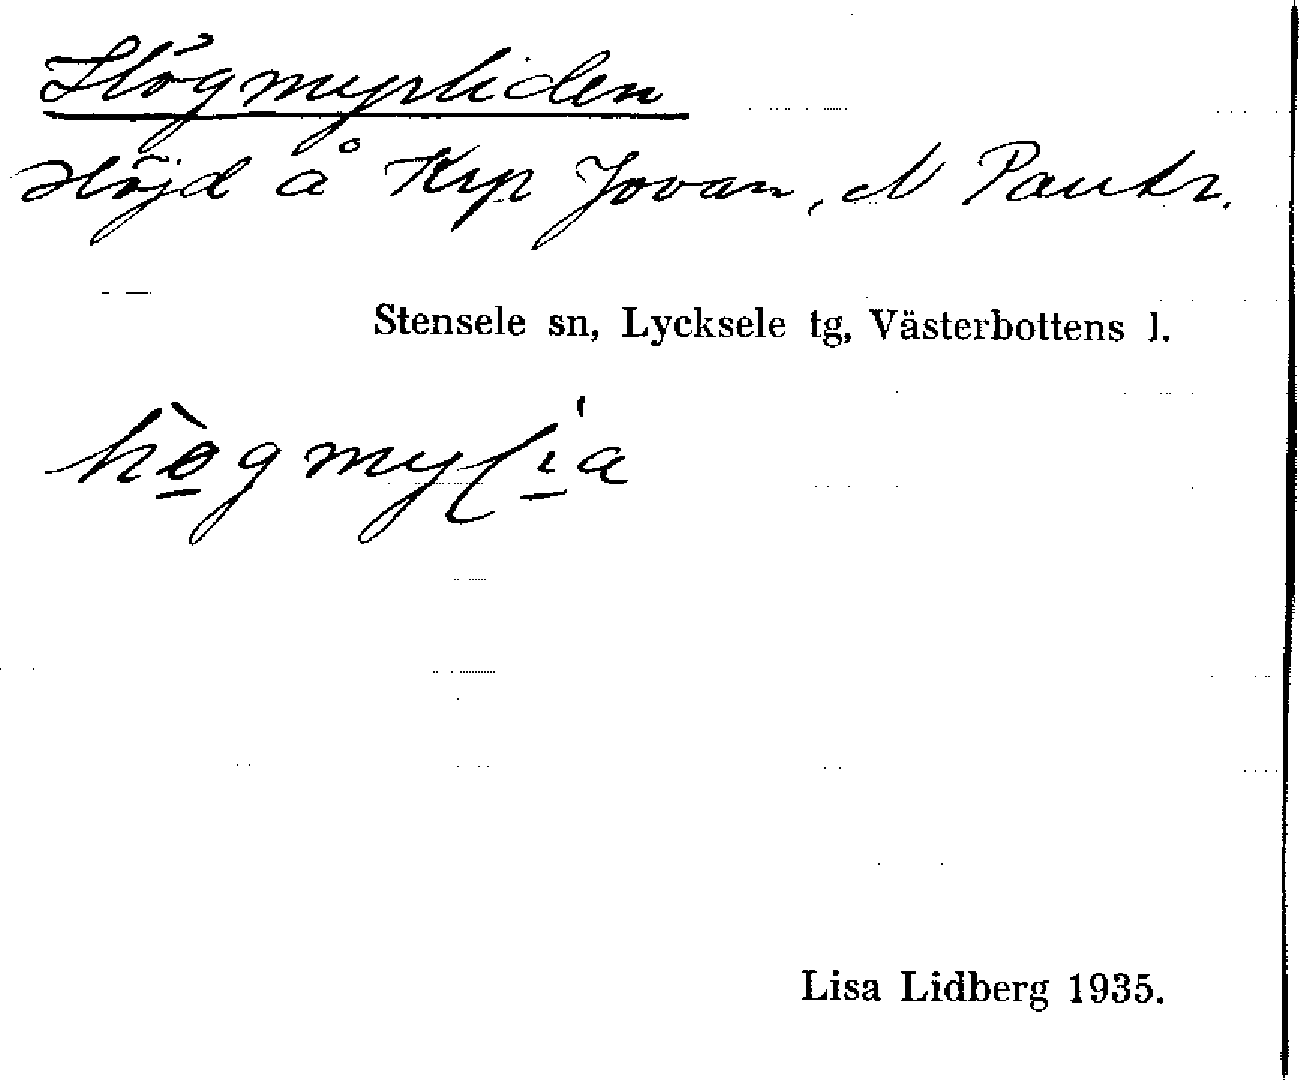 Högmyrliden
Höjd å Krp Jovan, N Pautr.
Stensele sn, Lycksele tg, Västerbottens l.
Lisa Lidberg 1935.